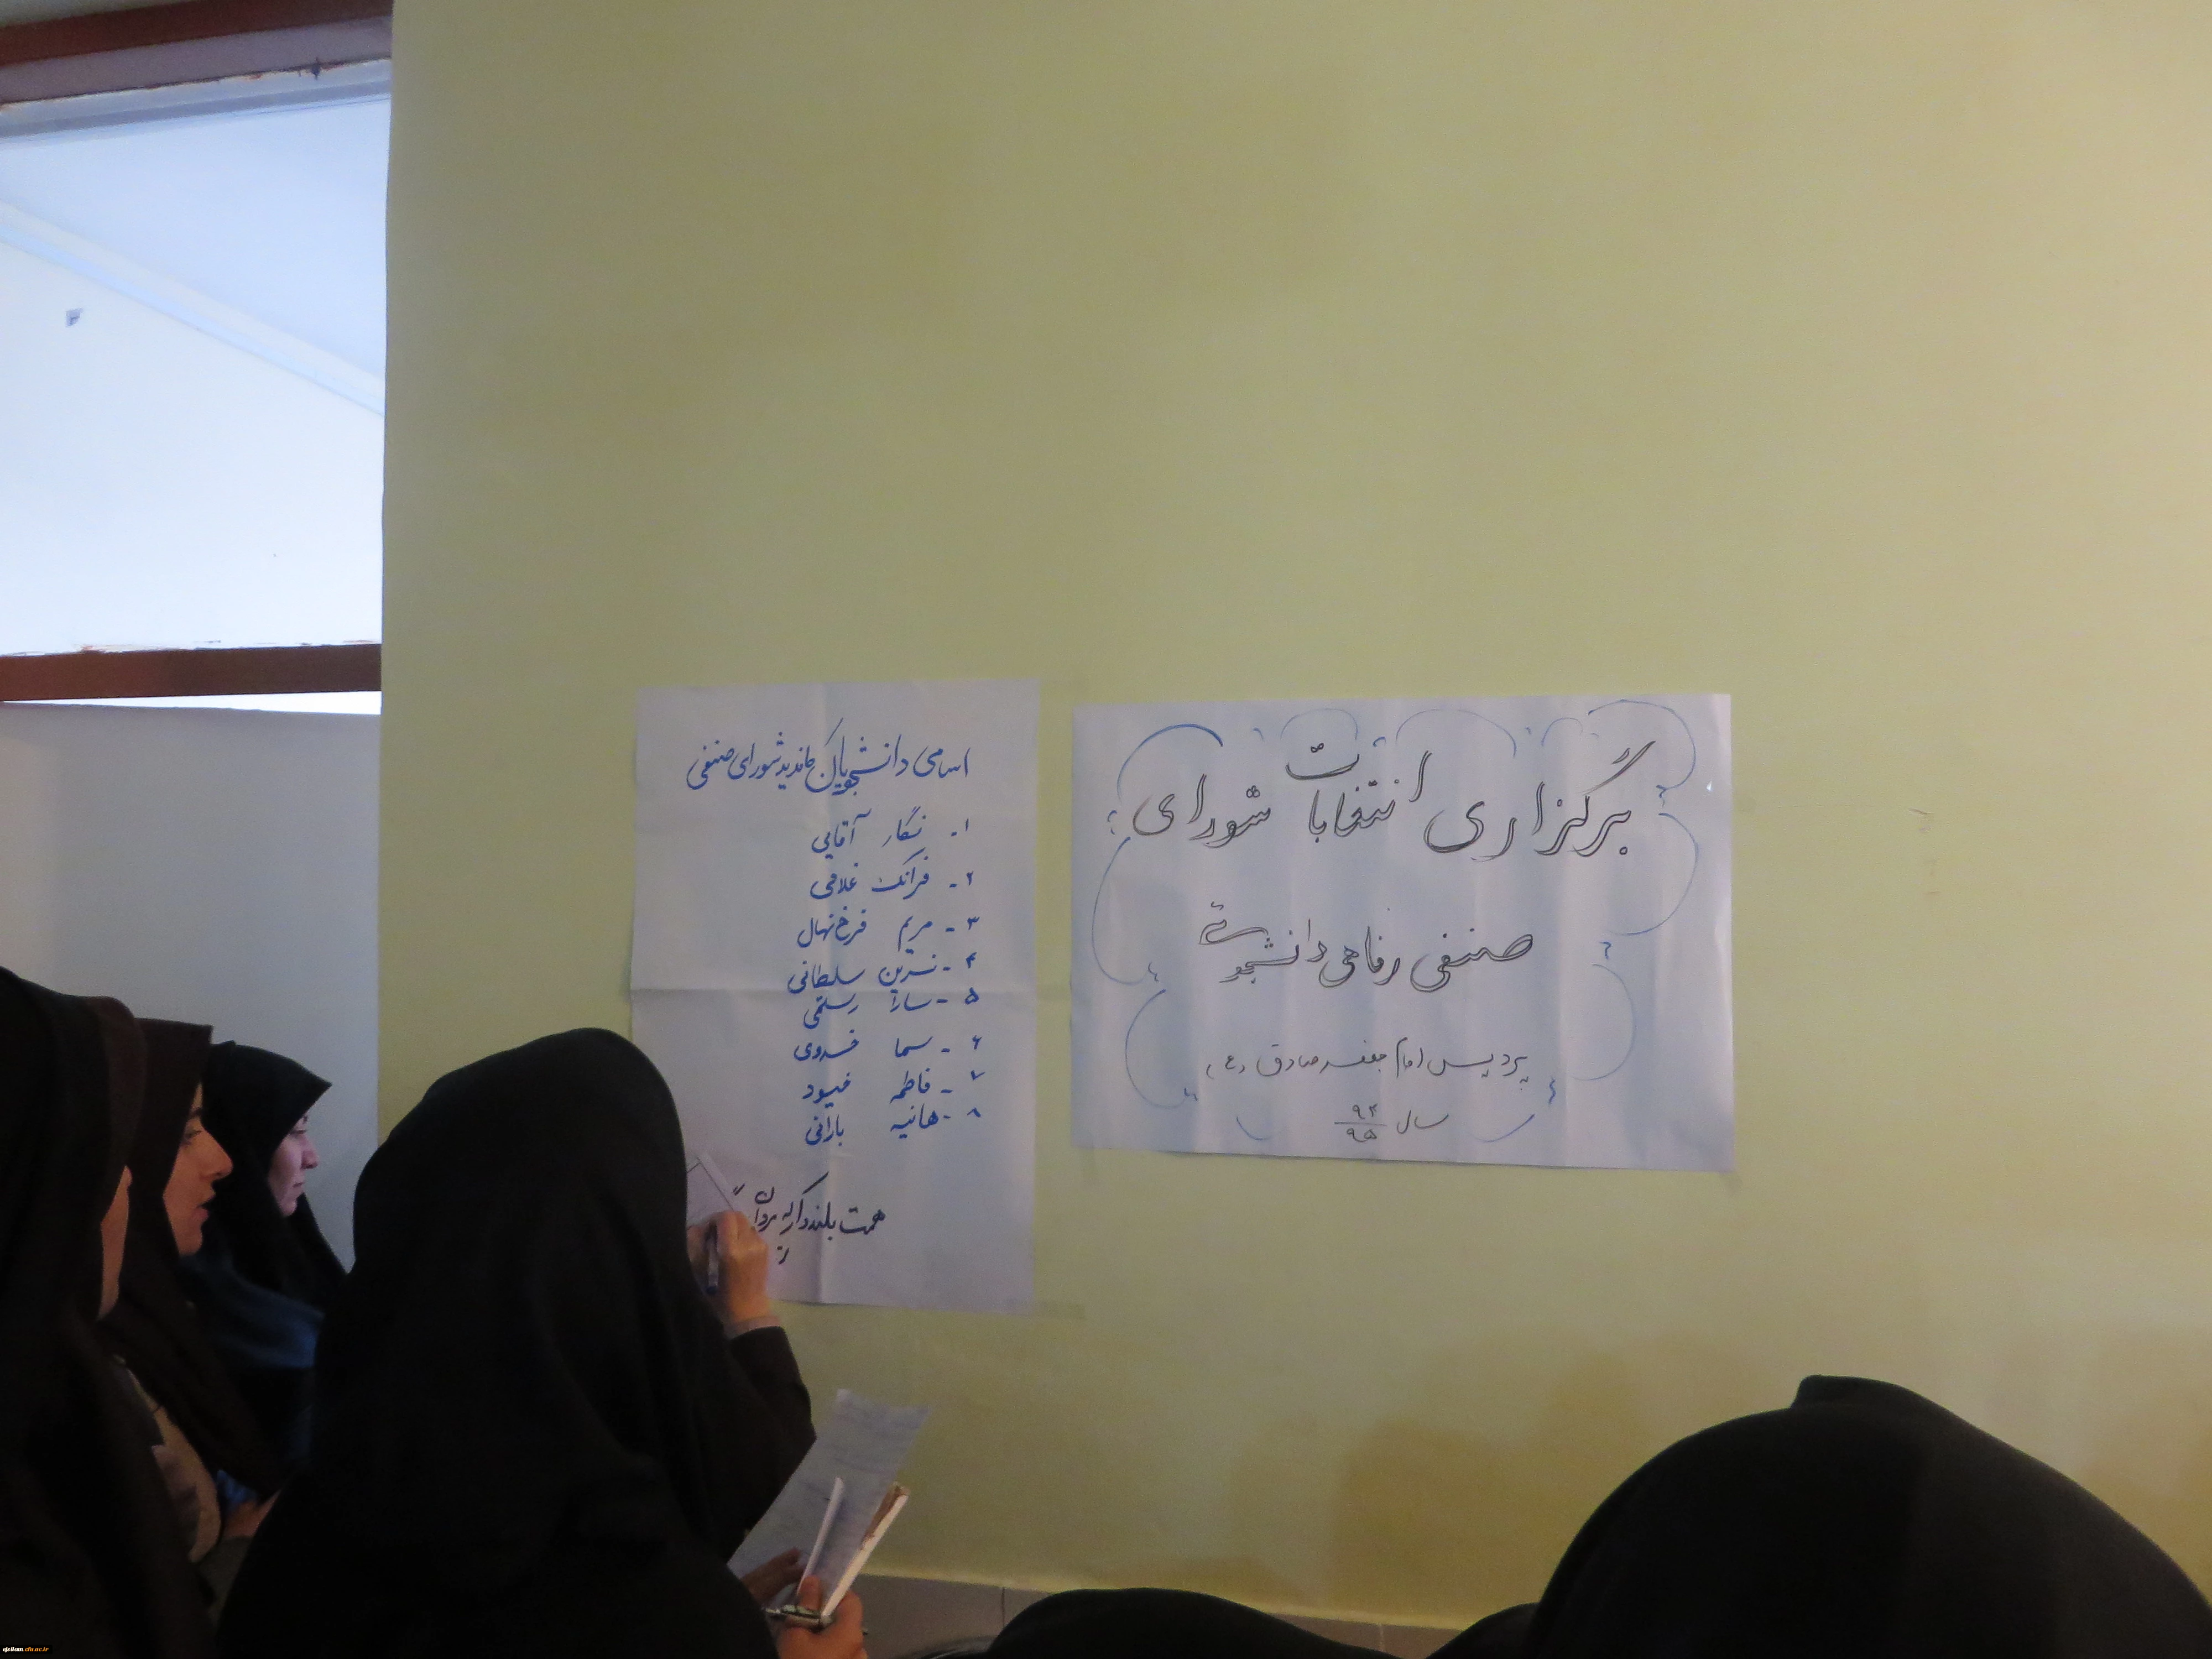 برگزاری انتخابات شورای
صنفی رفاهی دانشجوئی
پردیس امام جعفر صادق (ع)
سال ۹۴
۹۵
اسامی دانشجویان کاندید شورای صنفی
۱- نگار آقایی
۲- فرانک غلامی
۳- مریم فرخ نهال
۴- نسرین سلطانی
۵- سارا رستمی
۶- سما خسروی
۷- فاطمه
۸- هانیه بارانی
همت بلند دار که مردان
cfu.ac.ir